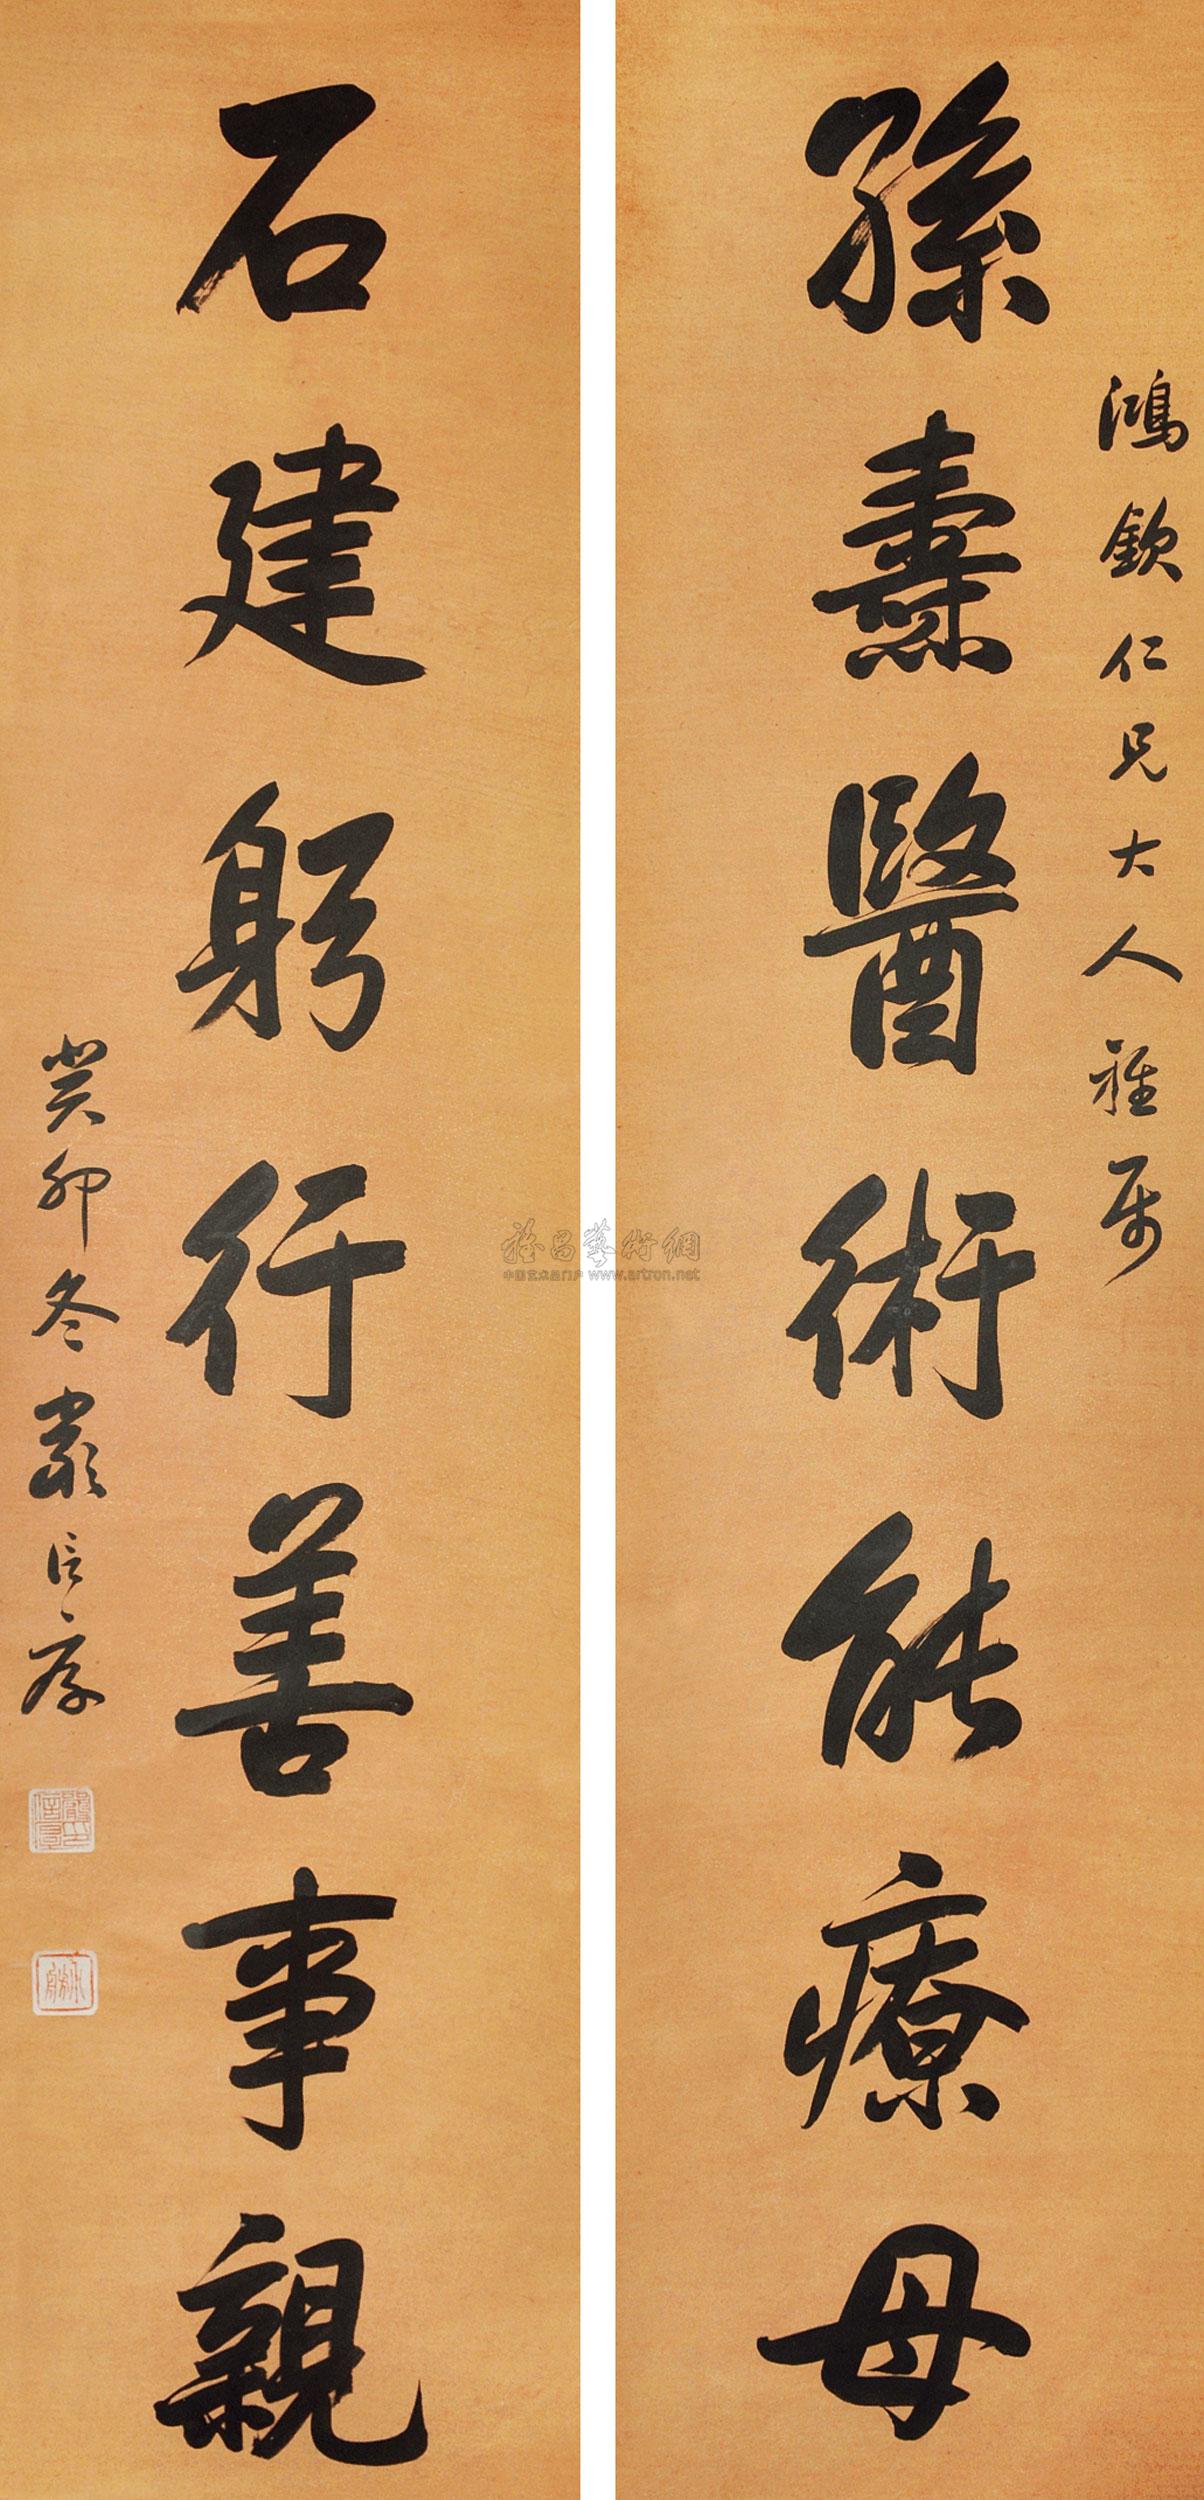 鴻欽仁兄大人雅属
孫燾醫術能療母
石建躬行善事親
癸卯冬嚴信厚
雅昌藝術網
中国艺术品门户 www.artron.net